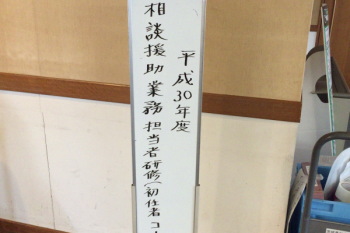 平成30年度
相談援助業務担当者研修(初任者コ